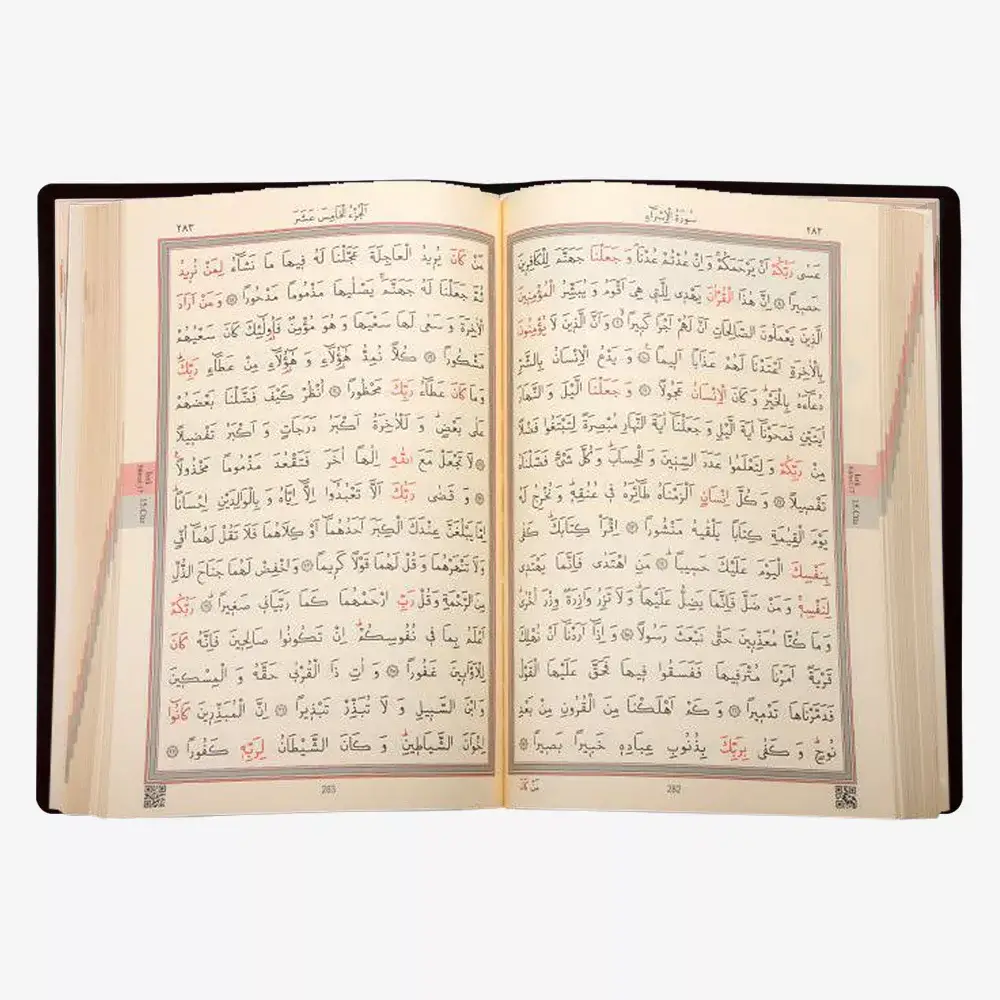 سُورَةُ الْاِسْرَاءِ
٢٨٢
عَسٰى رَبُّكُمْ اَنْ يَرْحَمَكُمْ وَ اِنْ عُدْتُمْ عُدْنَا وَ جَعَلْنَا جَهَنَّمَ لِلْكَافِرِينَ
حَصِيرًا ۞ اِنَّ هٰذَا الْقُرْاٰنَ يَهْدِى لِلَّتِى هِىَ اَقْوَمُ وَ يُبَشِّرُ الْمُؤْمِنِينَ
الَّذِينَ يَعْمَلُونَ الصَّالِحَاتِ اَنَّ لَهُمْ اَجْرًا كَبِيرًا ۞ وَ اَنَّ الَّذِينَ لَا يُؤْمِنُونَ
بِالْاٰخِرَةِ اَعْتَدْنَا لَهُمْ عَذَابًا اَلِيمًا ۞ وَ يَدْعُ الْاِنْسَانُ بِالشَّرِّ
دُعَٓاءَهُ بِالْخَيْرِ وَ كَانَ الْاِنْسَانُ عَجُولًا ۞ وَ جَعَلْنَا الَّيْلَ وَ النَّهَارَ
اٰيَتَيْنِ فَمَحَوْنَٓا اٰيَةَ الَّيْلِ وَ جَعَلْنَٓا اٰيَةَ النَّهَارِ مُبْصِرَةً لِتَبْتَغُوا فَضْلًا
مِنْ رَبِّكُمْ وَ لِتَعْلَمُوا عَدَدَ السِّنِينَ وَ الْحِسَابَ وَ كُلَّ شَىْءٍ فَصَّلْنَاهُ
تَفْصِيلًا ۞ وَ كُلَّ اِنْسَانٍ اَلْزَمْنَاهُ طَٓائِرَهُ فِى عُنُقِهِ وَ نُخْرِجُ لَهُ
يَوْمَ الْقِيٰمَةِ كِتَابًا يَلْقٰيهُ مَنْشُورًا ۞ اِقْرَأْ كِتَابَكَ كَفٰى
بِنَفْسِكَ الْيَوْمَ عَلَيْكَ حَسِيبًا ۞ مَنِ اهْتَدٰى فَاِنَّمَا يَهْتَدِى
لِنَفْسِهِ وَ مَنْ ضَلَّ فَاِنَّمَا يَضِلُّ عَلَيْهَا وَ لَا تَزِرُ وَازِرَةٌ وِزْرَ اُخْرٰى
وَ مَا كُنَّا مُعَذِّبِينَ حَتّٰى نَبْعَثَ رَسُولًا ۞ وَ اِذَٓا اَرَدْنَٓا اَنْ نُهْلِكَ
قَرْيَةً اَمَرْنَا مُتْرَفِيهَا فَفَسَقُوا فِيهَا فَحَقَّ عَلَيْهَا الْقَوْلُ
فَدَمَّرْنَاهَا تَدْمِيرًا ۞ وَ كَمْ اَهْلَكْنَا مِنَ الْقُرُونِ مِنْ بَعْدِ
نُوحٍ وَ كَفٰى بِرَبِّكَ بِذُنُوبِ عِبَادِهِ خَبِيرًا بَصِيرًا ۞
مَنْ كَانَ
282
اَلْجُزْءُ الْخَامِسَ عَشَرَ
٢٨٣
مَنْ كَانَ يُرِيدُ الْعَاجِلَةَ عَجَّلْنَا لَهُ فِيهَا مَا نَشَٓاءُ لِمَنْ نُرِيدُ
ثُمَّ جَعَلْنَا لَهُ جَهَنَّمَ يَصْلٰيهَا مَذْمُومًا مَدْحُورًا ۞ وَ مَنْ اَرَادَ
الْاٰخِرَةَ وَ سَعٰى لَهَا سَعْيَهَا وَ هُوَ مُؤْمِنٌ فَاُولٰٓئِكَ كَانَ سَعْيُهُمْ
مَشْكُورًا ۞ كُلًّا نُمِدُّ هٰٓؤُلَٓاءِ وَ هٰٓؤُلَٓاءِ مِنْ عَطَٓاءِ رَبِّكَ
وَ مَا كَانَ عَطَٓاءُ رَبِّكَ مَحْظُورًا ۞ اُنْظُرْ كَيْفَ فَضَّلْنَا بَعْضَهُمْ
عَلٰى بَعْضٍ وَ لَلْاٰخِرَةُ اَكْبَرُ دَرَجَاتٍ وَ اَكْبَرُ تَفْضِيلًا
۞ لَا تَجْعَلْ مَعَ اللّٰهِ اِلٰهًا اٰخَرَ فَتَقْعُدَ مَذْمُومًا مَخْذُولًا
۞ وَ قَضٰى رَبُّكَ اَلَّا تَعْبُدُٓوا اِلَّٓا اِيَّاهُ وَ بِالْوَالِدَيْنِ اِحْسَانًا
اِمَّا يَبْلُغَنَّ عِنْدَكَ الْكِبَرَ اَحَدُهُمَٓا اَوْ كِلَاهُمَا فَلَا تَقُلْ لَهُمَٓا اُفٍّ
وَ لَا تَنْهَرْهُمَا وَ قُلْ لَهُمَا قَوْلًا كَرِيمًا ۞ وَ اخْفِضْ لَهُمَا جَنَاحَ الذُّلِّ
مِنَ الرَّحْمَةِ وَ قُلْ رَبِّ ارْحَمْهُمَا كَمَا رَبَّيَانِى صَغِيرًا ۞ رَبُّكُمْ
اَعْلَمُ بِمَا فِى نُفُوسِكُمْ اِنْ تَكُونُوا صَالِحِينَ فَاِنَّهُ كَانَ
لِلْاَوَّابِينَ غَفُورًا ۞ وَ اٰتِ ذَا الْقُرْبٰى حَقَّهُ وَ الْمِسْكِينَ
وَ ابْنَ السَّبِيلِ وَ لَا تُبَذِّرْ تَبْذِيرًا ۞ اِنَّ الْمُبَذِّرِينَ كَانُٓوا
اِخْوَانَ الشَّيَاطِينِ وَ كَانَ الشَّيْطَانُ لِرَبِّهِ كَفُورًا ۞
283
15.Cüz
15.Cüz